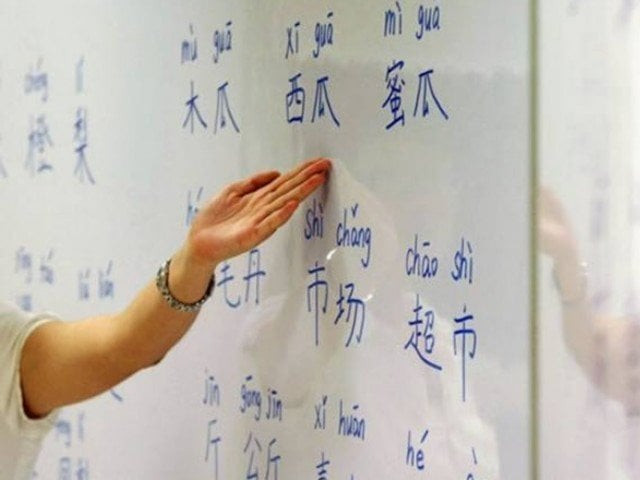 mù guā xī guā mì gua
木瓜 西瓜 蜜瓜
橙 梨
shì chǎng chāo shì
毛丹 市场 超市
liú lián
jīn gōng jīn xǐ huān hé
斤 公斤